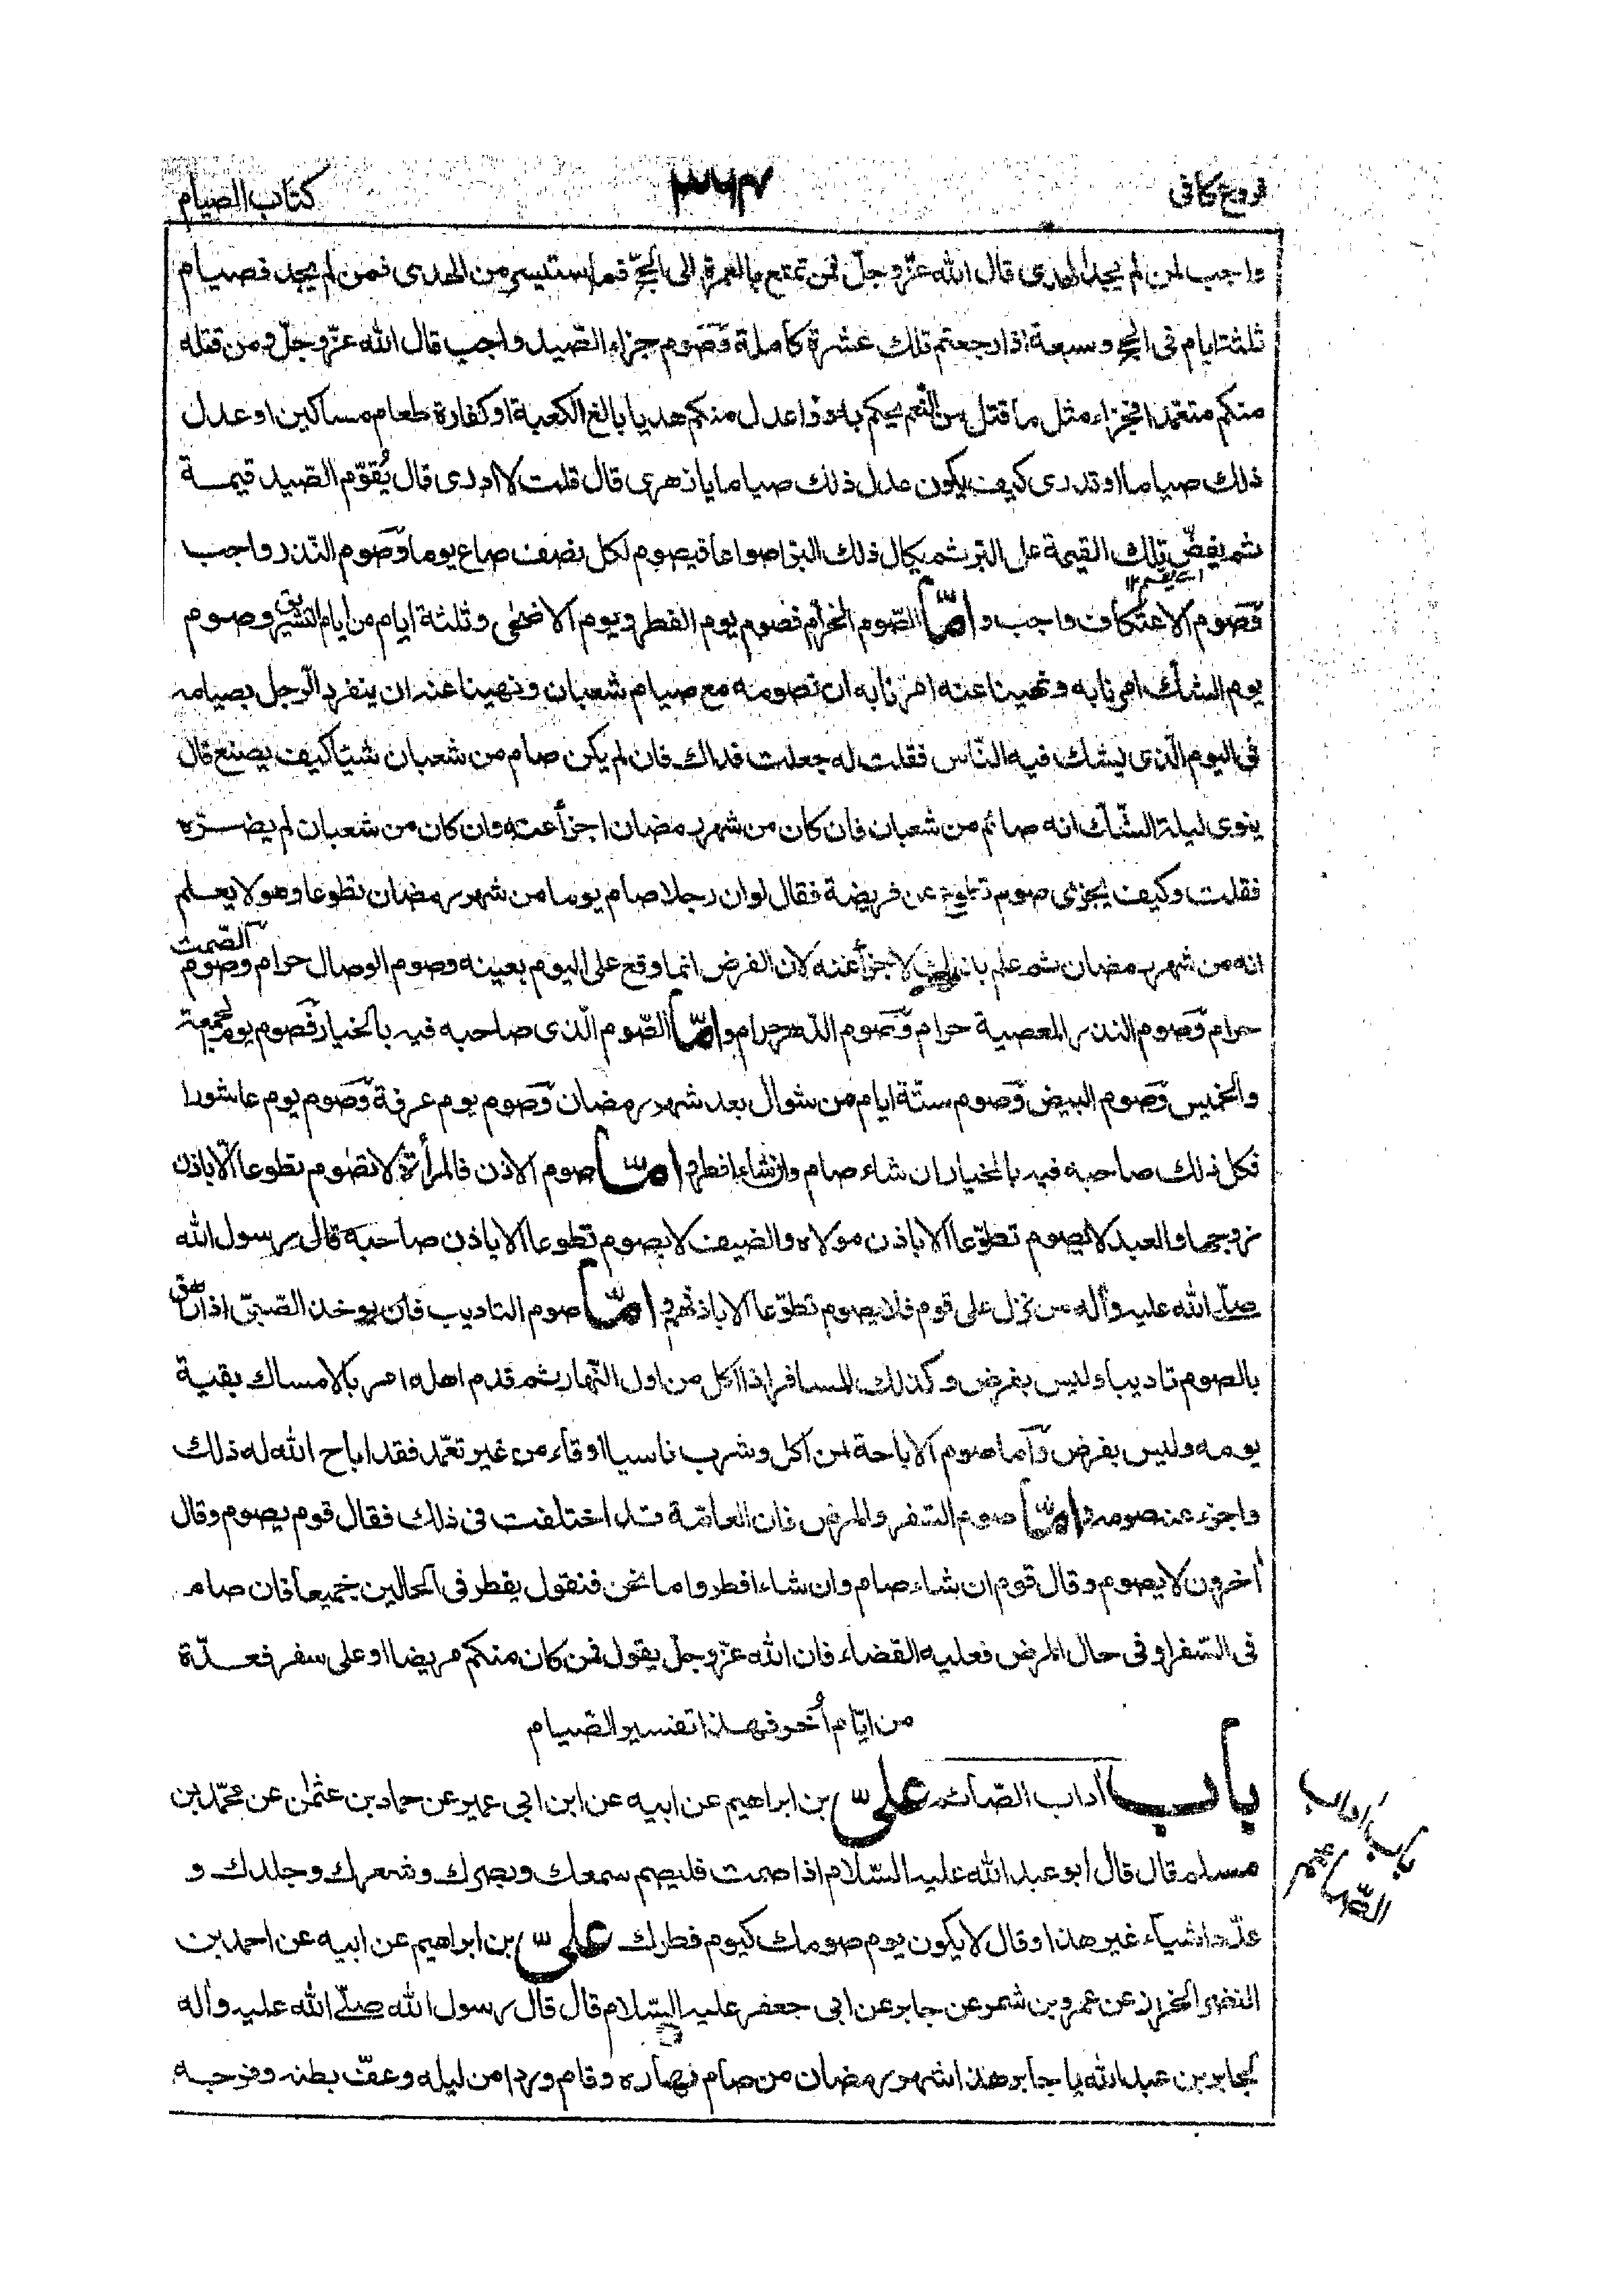 فروع كافى
كتاب الصيام
واجب لمن لم يجد الهدى قال الله عزّ وجلّ فمن تمتع بالعمرة الى الحجّ فما استيسر من الهدى فمن لم يجد فصيام
ثلثة ايام فى الحج وسبعة اذا رجعتم تلك عشرة كاملة وصوم جزاء الصّيد واجب قال الله عزّ وجلّ ومن قتله
منكم متعمّدا فجزاء مثل ما قتل من النّعم يحكم به ذوا عدل منكم هديا بالغ الكعبة او كفارة طعام مساكين او عدل
ذلك صياما اوتدرى كيف يكون عدل ذلك صياما يا زهرى قال قلت لا ادرى قال يُقوّم الصّيد قيمة
ثم يفضّ تلك القيمة على البر ثم يكال ذلك البرّ اصواعا فيصوم لكل نصف صاع يوما وصوم النّذر واجب
وصوم الاعتكاف واجب وامّا الصّوم الحرام فصوم يوم الفطر ويوم الاضحى وثلثة ايام من ايام التشريق وصوم
يوم الشك امرنا به ونهينا عنه امرنا به ان نصومه مع صيام شعبان ونهينا عنه ان ينفرد الرّجل بصيامه
فى اليوم الّذى يشك فيه النّاس فقلت له جعلت فداك فان لم يكن صام من شعبان شيئا كيف يصنع قال
ينوى ليلة الشّك انه صائم من شعبان فان كان من شهر رمضان اجزأ عنه وان كان من شعبان لم يضرّه
فقلت وكيف يجزى صوم تطوع عن فريضة فقال لو ان رجلا صام يوما من شهر رمضان تطوعا وهو لا يعلم
انه من شهر رمضان ثم علم بذلك لاجزأ عنه لان الفرض انما وقع على اليوم بعينه وصوم الوصال حرام وصوم الصّمت
حرام وصوم النذر المعصية حرام وصوم الدّهر حرام وامّا الصّوم الّذى صاحبه فيه بالخيار فصوم يوم الجمعة
والخميس وصوم البيض وصوم ستّة ايام من شوال بعد شهر رمضان وصوم يوم عرفة وصوم يوم عاشورا
فكل ذلك صاحبه فيه بالخيار ان شاء صام وان شاء افطر وامّا صوم الاذن فالمرأة لا تصوم تطوعا الّا باذن
زوجها والعبد لا يصوم تطوّعا الا باذن مولاه والضيف لا يصوم تطوعا الا باذن صاحبه قال رسول الله
صلّى الله عليه وآله من نزل على قوم فلا يصوم تطوّعا الا باذنهم وامّا صوم التاديب فان يوخذ الصّبىّ اذا راهق
بالصوم تاديبا وليس بفرض وكذلك المسافر اذا اكل من اول النّهار ثم قدم اهله امر بالامساك بقية
يومه وليس بفرض وامّا صوم الاباحة لمن اكل وشرب ناسيا او قاء من غير تعمّد فقد اباح الله له ذلك
واجزء عنه صومه وامّا صوم السّفر والمرض فان العامّة قد اختلفت فى ذلك فقال قوم يصوم وقال
آخرون لا يصوم وقال قوم ان شاء صام وان شاء افطر واما نحن فنقول يفطر فى الحالين جميعا فان صام
فى السّفر او فى حال المرض فعليه القضاء فان الله عزّ وجلّ يقول فمن كان منكم مريضا او على سفر فعدّة
من ايّام اُخر فهذا تفسير الصّيام
باب آداب الصّائم علىّ بن ابراهيم عن ابيه عن ابن ابى عمير عن حماد بن عثمٰن عن محمّد بن
مسلم قال قال ابو عبد الله عليه السّلام اذا صمت فليصم سمعك وبصرك وشعرك وجلدك و
عدّد اشياء غير هذا وقال لا يكون يوم صومك كيوم فطرك علىّ بن ابراهيم عن ابيه عن احمد بن
النضر الخزاز عن عمرو بن شمر عن جابر عن ابى جعفر عليه السّلام قال قال رسول الله صلّى الله عليه وآله
لجابر بن عبد الله يا جابر هذا شهر رمضان من صام نهاره وقام وردا من ليله وعفّ بطنه وفرجه
باب آداب
الصّائم